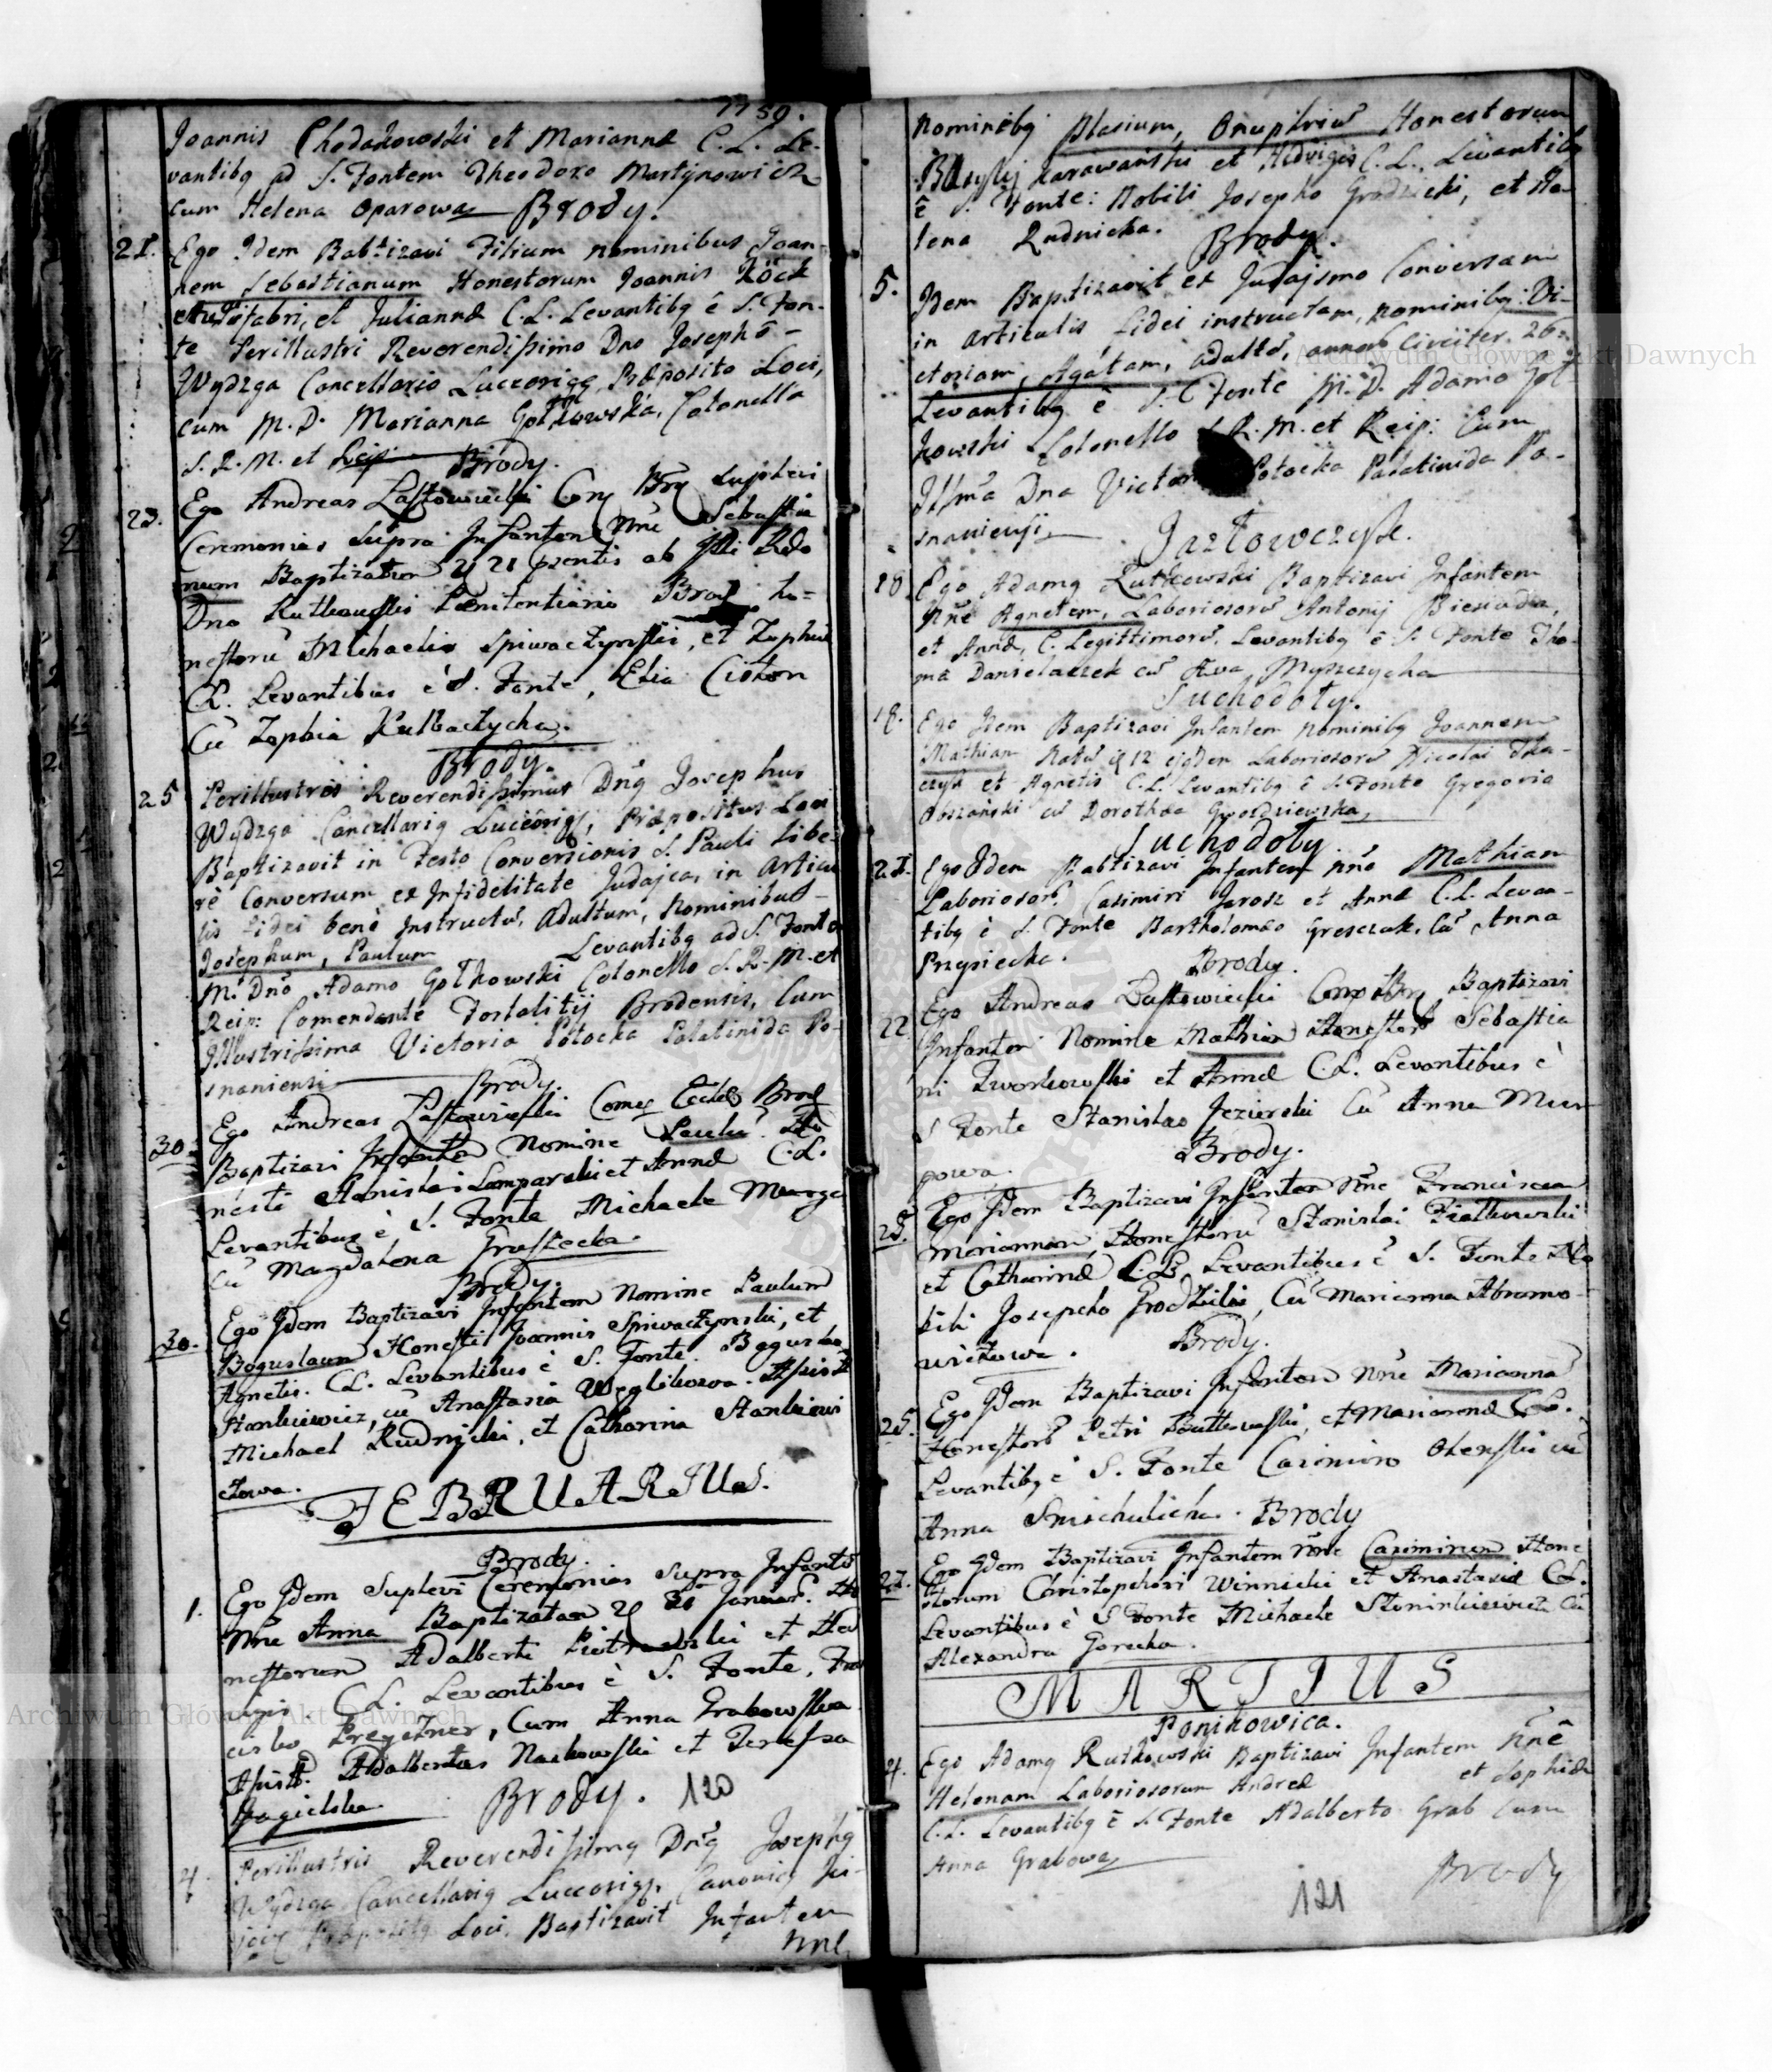 1759.
Joannis Chodakowski et Mariannæ C. L. Le-
vantibg ad S. Fontem Theodoro Martynowicz
cum Helena Oparowa Brody.
21. Ego Idem Babtizavi Filium nominibus Joan-
nem Sebastianum Honestorum Joannis Köck
fabri, et Juliannæ C. L. Levantibg è S. Fon-
te Perillustri Reverendissimo Dno Josepho
Wydzga Cancellario Luceorieg Præposito Loci,
cum M. D. Marianna Golkowska, Colonella
S. R. M. et Reip. Brody.
23. Ego Andreas Lastowiecki Supplevi
Ceremonias Supra Infantem Nne Sebastia
num Baptizatum 21 præsentis ab
Dno Rutkowski Pænitentiario Brod Ho=
nestoru Michaelis Spiwaczynski, et Zophiæ
C. L. Levantibus è S. Fonte, Elia Cioton
Cu Zophia Kulbaczycha.
Brody.
25 Perillustris Reverendissimus Dng Josephus
Wydzga Cancellarig Luceorig, Præpositus Loci
Baptizavit in Festo Conversionis S. Pauli Libe-
rè Conversum ex Infidelitate Judajca, in Articu
lis Fidei benè Instructu, Adultum, Nominibus
Josephum, Paulum Levantibg ad S. Fonte
M. Dno Adamo Golkowski Colonello S. R. M. et
Reip: Comendante Fortalitij Brodensis, Cum
Illustrissima Victoria Potocka Palatinida Po-
snaniensi Brody.
30. Ego Andreas Lastowiecki Brod
Baptizavi Infante Nomine Paulu Ho
nesti Stanislai Lamparski et Annæ C. L.
Levantibus è S. Fonte Michaele
Cu Magdalena
Brody.
30. Ego Idem Baptizavi Infantem Nomine Paulum
Boguslaum Honesti Joannis Spiwaczynski, et
Agnetis. C L. Levantibus è S. Fonte. Bogusl
Stankiewicz, cu Anastasia Węglikowa.
Michael Rudnicki, et Catharina Stankiewi
czowa.
FEBRUARIUS.
Brody.
1. Ego Idem Suplevi Ceremonias Supra Infante
Nne Anna Baptizatam Januar. Ho
nestorum Adalberti et Hed
vigis C L. Levantibus è S. Fonte, Fran
cisko, Cum Anna Grabowska
Adalbertus Naikowski et Teressa
Jagielska. Brody. 120
4. Perillustris Reverendissimg Dng Josephg
Wydzga Cancellarig Luceorig, Canonicg Ki-
Loci Baptizavit Infantem
Nne
Nominibg Blasium, Onuphriu Honestorum
Karawański et Hedvigis C. L. Levantibg
è S. Fonte: Nobili Josepho Grodzicki, et He
lena Rudnicka. Brody.
5. Idem Baptizavit ex Judajsmo Conversam
in Articulis Fidei instructam, nominibg: Vi-
ctoriam, Agatam, adultu, annoru Circiter. 26
Levantibg è S. Fonte M. D. Adamo Gol-
kowski Colonello S. R. M. et Reip: Cum
Illma Dna Victoria Potocka Palatinida Po-
snaniensi
Jazłowczyk.
10. Ego Adamg Rutkowski Baptizavi Infantem
Nne Agnetem, Laboriosoru Antonij Biesiada,
et Annæ, C. Legittimoru, Levantibg è S. Fonte Tho-
ma Danielaszek cu Ewa Myszczycha
Suchodoły.
18. Ego Idem Baptizavi Infantem Nominibg Joannem
Mathiam Natu 12 ejusdem Laboriosoru Nicolai Tka-
czyk et Agnetis C. L. Levantibg è S. Fonte Gregorio
cu Dorothea Gwozdziewska,
Suchodoły
21. Ego Idem Babtizavi Infantem Nne Mathiam
Laboriosoru Casimiri Jarosz et Annæ C. L. Levan-
tibg è S. Fonte Bartholomæo Greszczuk. Cu Anna
Przysiecka. Brody.
22 Ego Andreas Lastowiecki Baptizavi
Infantem Nomine Mathiam Honestoru Sebastia
ni Dworkowski et Annæ C. L. Levantibus è
S Fonte Stanislao Jezierski Cu Anna
powa. Brody.
25. Ego Idem Baptizavi Infantem Nne Francisca
Mariannam, Honestoru Stanislai Fiałkowski
et Catharinæ C. L. Levantibus è S. Fonte No
bili Josepho Grodzicki, Cu Marianna Abramo-
wiczowa. Brody.
25. Ego Idem Baptizavi Infantem Nne Marianna
Honestoru Petri Rutkowski, et Mariannæ C. L.
Levantibg è S. Fonte Casimiro cu
Anna Brody
27. Ego Idem Baptizavi Infantem Nne Casimirum Hone
storum Christophori Winnicki et Anastasiæ C. L.
Levantibus è S Fonte Michaele Cu
Alexandra Gorecka.
MARTIUS
Ponikowica.
4. Ego Adamg Rutkowski Baptizavi Infantem Nnê
Helenam Laboriosorum Andreæ et Sophiæ
C. L. Levantibg è S. Fonte Adalberto Grab Cum
Anna Grabowa
121 Brody
Archiwum Główne Akt Dawnych
Archiwum Główne Akt Dawnych